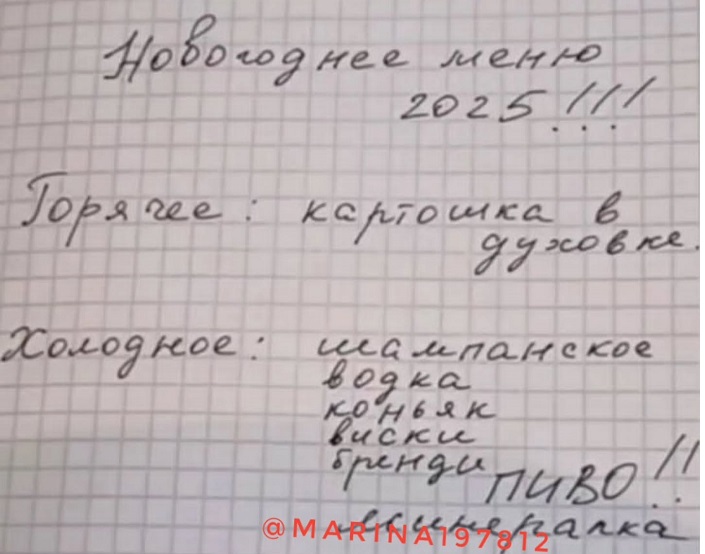 Новогоднее меню
2025!!!
Горячее: картошка в
духовке.
Холодное: шампанское
водка
коньяк
виски
бренди ПИВО!!
минералка
@MARINA197812